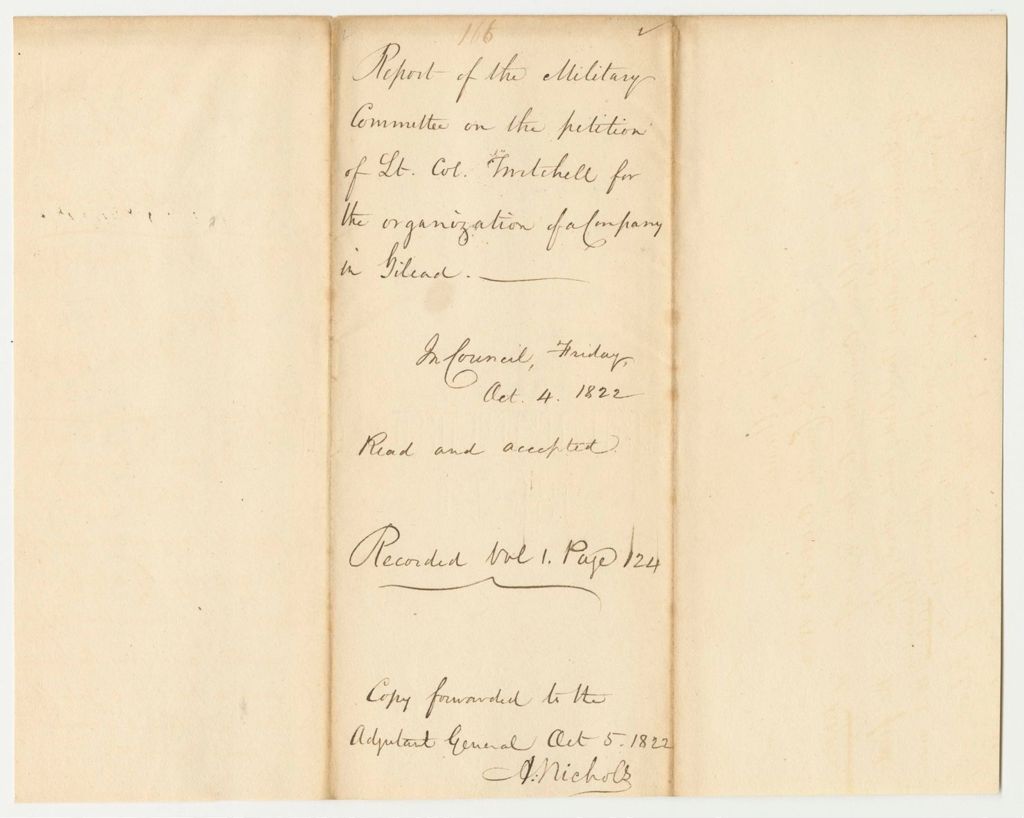 116
Report of the Military
Committee on the petition
of Lt. Col. Twitchell for
the organization of a Company
in Gilead.
In Council, Friday,
Oct. 4. 1822
Read and accepted.
Recorded Vol 1. Page 124
Copy forwarded to the
Adjutant General Oct 5. 1822
A. Nichols